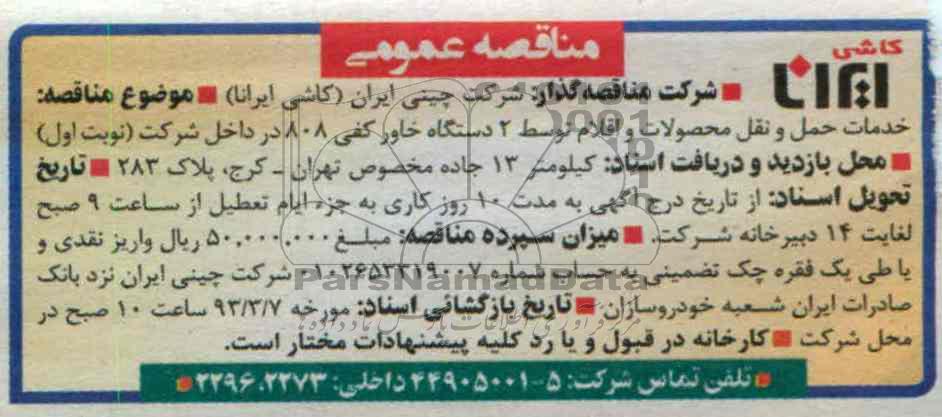 مناقصه عمومی
کاشی
ایرانا
■ شرکت مناقصه‌گذار: شرکت چینی ایران (کاشی ایرانا) ■ موضوع مناقصه:
خدمات حمل و نقل محصولات و اقلام توسط ۲ دستگاه خاور کفی ۸۰۸ در داخل شرکت (نوبت اول)
■ محل بازدید و دریافت اسناد: کیلومتر ۱۳ جاده مخصوص تهران ـ کرج، پلاک ۲۸۳ ■ تاریخ
تحویل اسناد: از تاریخ درج آگهی به مدت ۱۰ روز کاری به جزء ایام تعطیل از ساعت ۹ صبح
لغایت ۱۴ دبیرخانه شرکت. ■ میزان سپرده مناقصه: مبلغ ۵۰,۰۰۰,۰۰۰ ریال واریز نقدی و
یا طی یک فقره چک تضمینی به حساب شماره ۰۱۰۲۶۵۳۳۱۹۰۰۷ شرکت چینی ایران نزد بانک
ParsNamadData
صادرات ایران شعبه خودروسازان ■ تاریخ بازگشائی اسناد: مورخه ۹۳/۳/۷ ساعت ۱۰ صبح در
محل شرکت ■ کارخانه در قبول و یا رد کلیه پیشنهادات مختار است.
■ تلفن تماس شرکت: ۵-۴۴۹۰۵۰۰۱ داخلی: ۲۲۷۳، ۲۲۹۶ ■